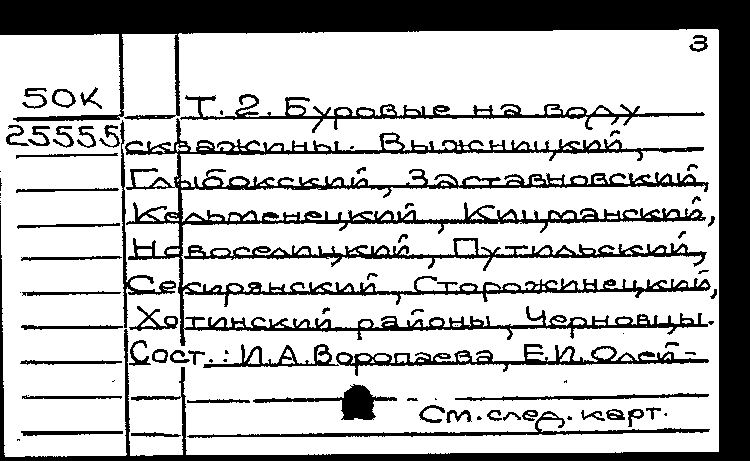 3
50К
25555
Т. 2. Буровые на воду
скважины. Выжницкий,
Глыбокский, Заставновский,
Кельменецкий, Кицманский,
Новоселицкий, Путильский,
Секирянский, Сторожинецкий,
Хотинский районы, Черновцы.
Сост.: И.А.Воропаева, Е.И.Олей-
См. след. карт.